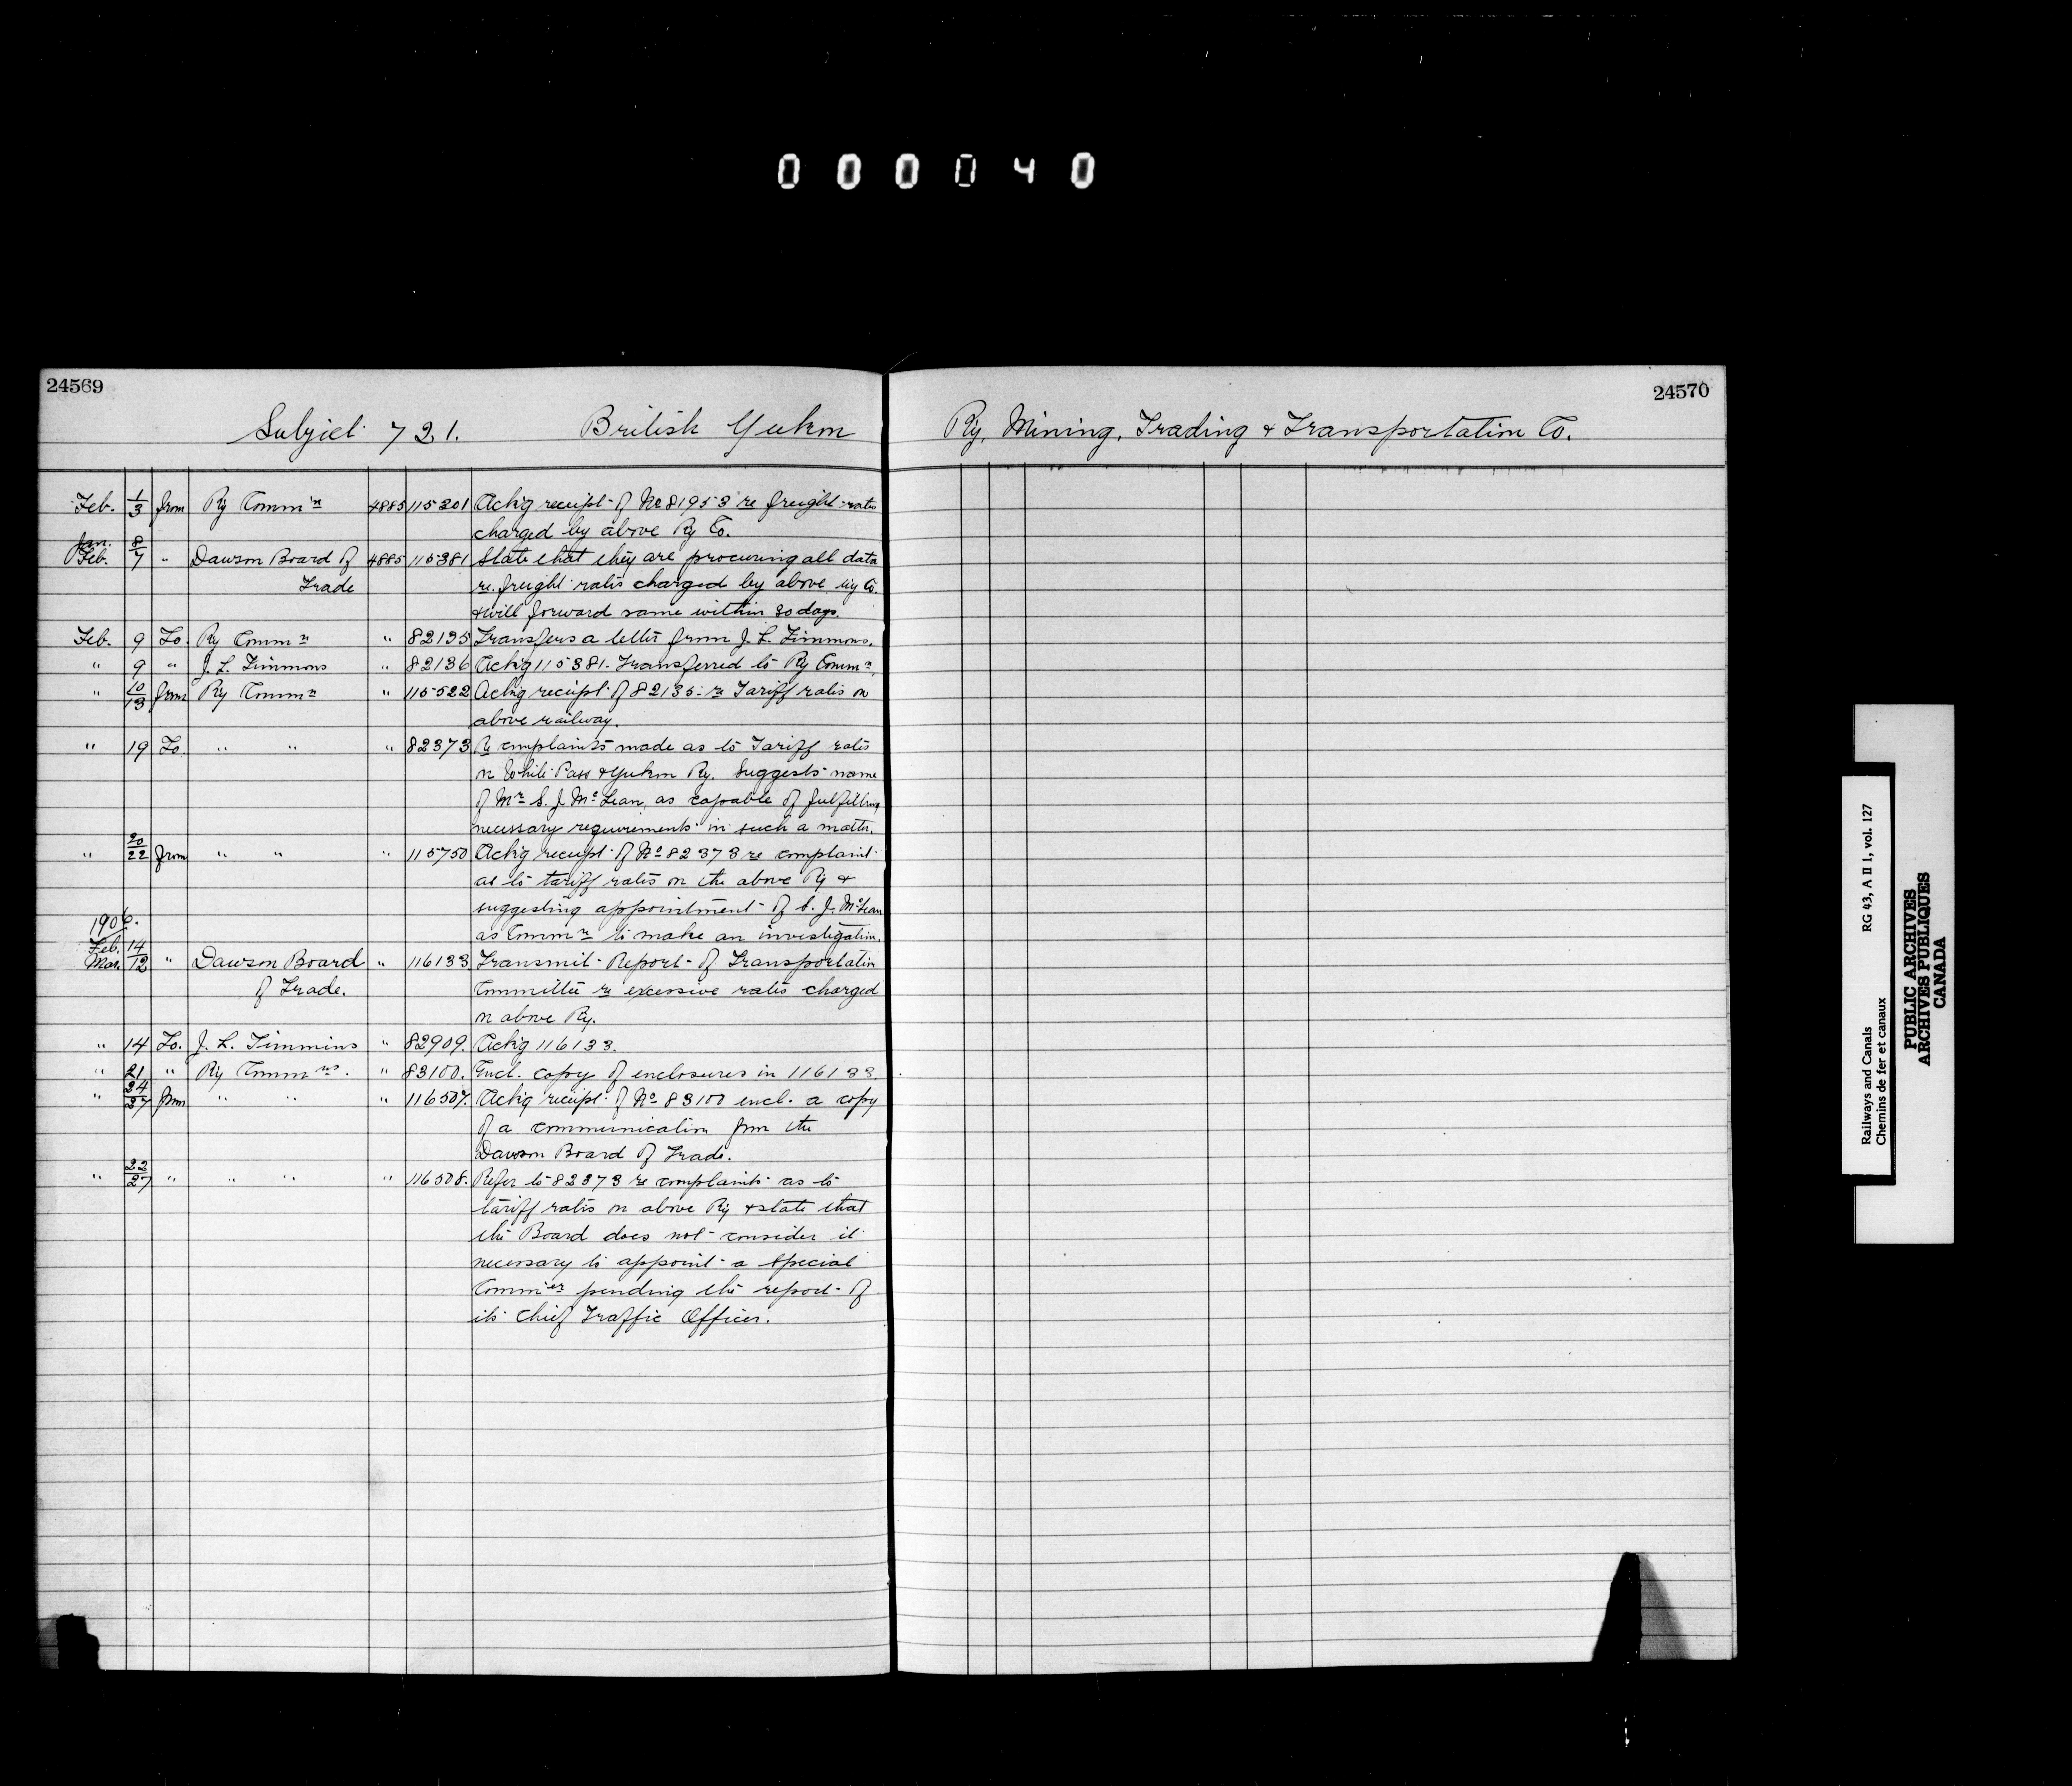 000040
24569
24570
Subject 721. British Yukon Ry, Mining, Trading & Transportation Co.
Feb. 1/3 from Ry Comm'n 4885 115301 Ackg receipt of No 81953 re freight rates
charged by above Ry Co.
Jan. 8
Feb. 7 " Dawson Board of 4885 115381 State that they are procuring all data
Trade re. freight rates charged by above Ry Co.
& will forward same within 30 days.
Feb. 9 To Ry Commn " 82135 Transfers a letter from J. L. Timmons.
" 9 " J. L. Timmons " 82136 Ackg 115381. Transferred to Ry Commn.
" 10/13 from Ry Commn " 115522 Ackg receipt of 82135 re Tariff rates on
above railway.
" 19 To " " " 82373 Re complaints made as to Tariff rates
on White Pass & Yukon Ry. Suggests name
of Mr S. J. McLean, as capable of fulfilling
necessary requirements in such a matter.
" 20/22 from " " " 115750 Ackg receipt of No 82373 re complaint
as to tariff rates on the above Ry &
suggesting appointment of S. J. McLean
as Commr to make an investigation.
1906.
Feb. 14
Mar. 12 " Dawson Board " 116133 Transmit Report of Transportation
of Trade. Committee re excessive rates charged
on above Ry.
" 14 To. J. L. Timmins " 82909. Ackg 116133.
" 21 " Ry Commns. " 83100. Encl. copy of enclosures in 116133.
" 24/27 from " " " 116507. Ackg receipt of No 83100 encl. a copy
of a communication from the
Dawson Board of Trade.
" 22/27 " " " " 116508. Refer to 82373 re complaints as to
tariff rates on above Ry & state that
the Board does not consider it
necessary to appoint a special
Commer pending the report of
its Chief Traffic Officer.
Railways and Canals RG 43, A II 1, vol. 127
Chemins de fer et canaux
PUBLIC ARCHIVES
ARCHIVES PUBLIQUES
CANADA